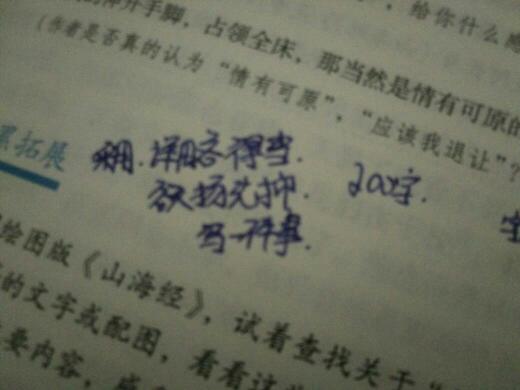 ，给你什么感
伸开手脚，占领全床，那当然是情有可原的
（作者是否真的认为“情有可原”，“应该我退让”？
拓展
用.详略得当.
欲扬先抑.
200字.
写一件事.
绘图版《山海经》，试着查找关于
的文字或配图，看看这
要内容，感